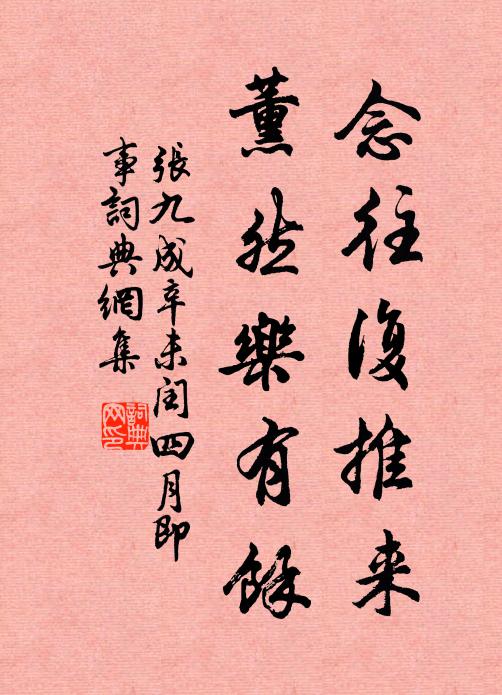 念往復推来
薰然樂有餘
張九成辛未閏四月即
事詞典網集
詞典
网印